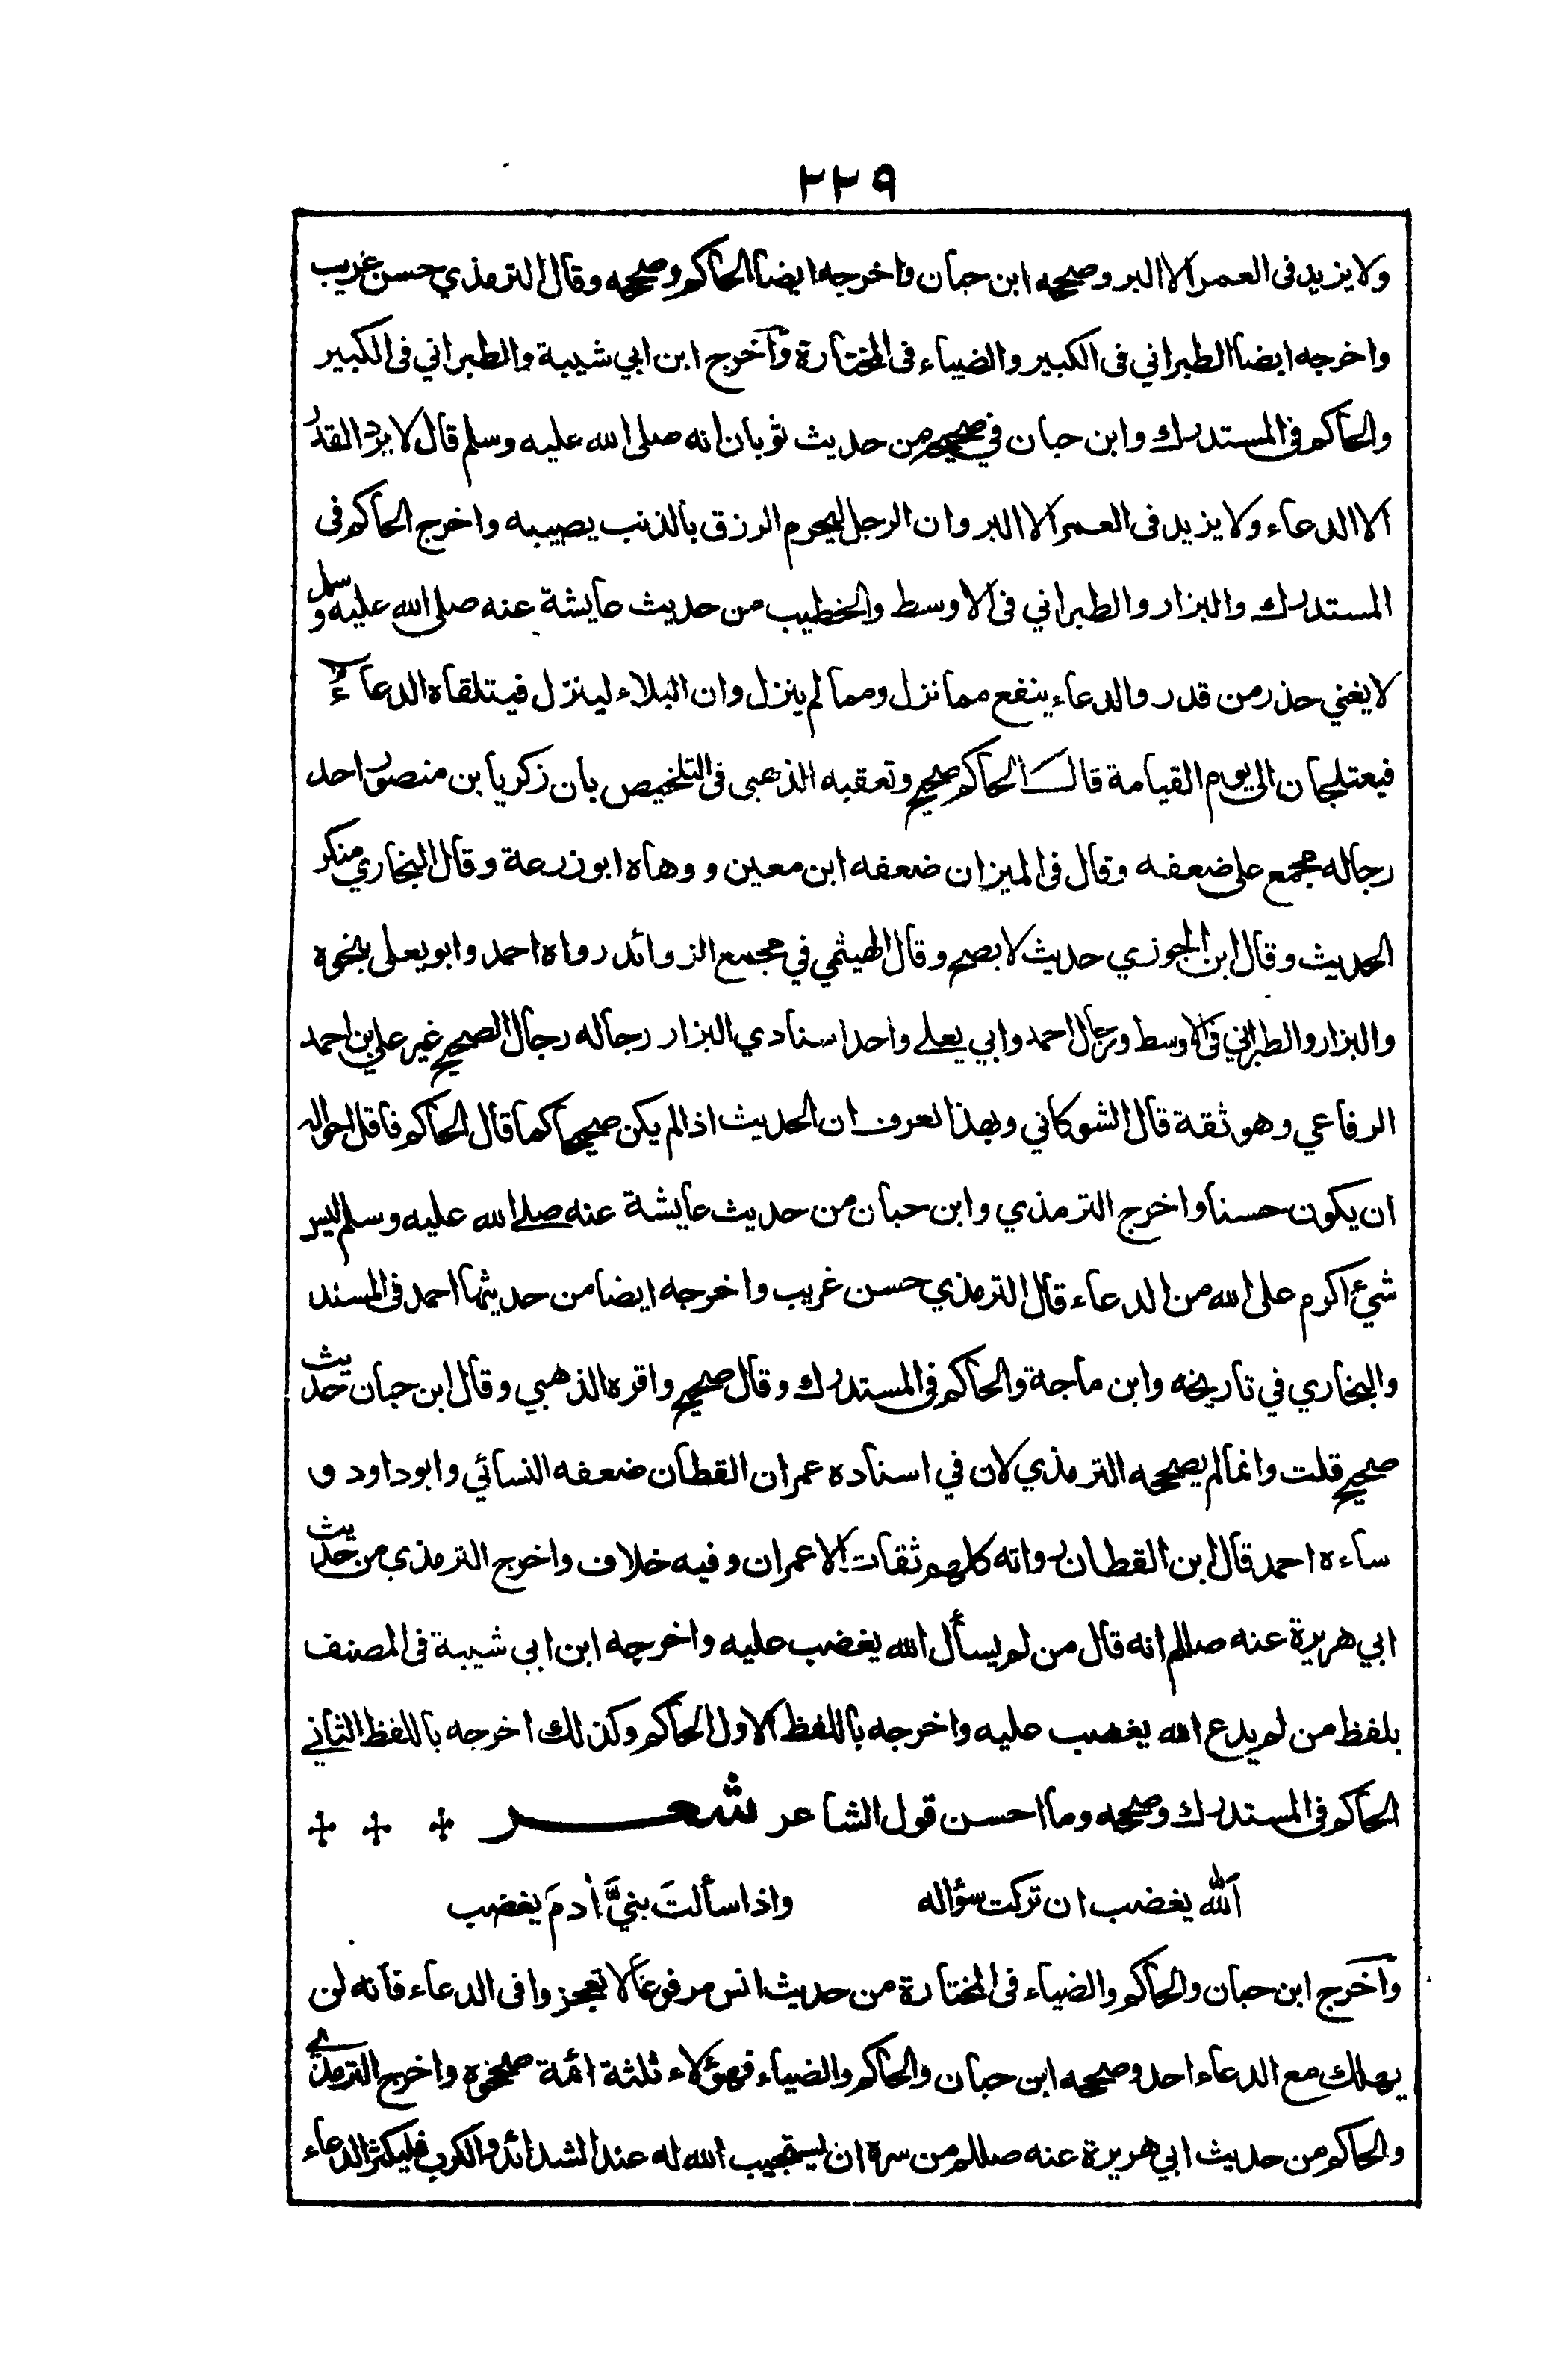 ٢٢٩
ولا يزيد فى العمر الا البر وصححه ابن حبان واخرجه ايضا الحاكم وصححه وقال الترمذي حسن غريب
واخرجه ايضا الطبراني فى الكبير والضياء فى المختارة وآخرج ابن ابي شيبة والطبراني فى الكبير
والحاكم فى المستدرك وابن حبان في صحيحه من حديث ثوبان انه صلى الله عليه وسلم قال لا يرد القدر
الا الدعاء ولا يزيد فى العمر الا البر وان الرجل ليحرم الرزق بالذنب يصيبه واخرج الحاكم فى
المستدرك والبزار والطبراني فى الاوسط والخطيب من حديث عايشة عنه صلى الله عليه وسلم
لا يغني حذر من قدر والدعاء ينفع مما نزل ومما لم ينزل وان البلاء لينزل فيتلقاه الدعاء
فيعتلجان الى يوم القيامة قال الحاكم صحيح وتعقبه الذهبى فى التلخيص بان زكريا بن منصور احد
رجاله مجمع على ضعفه وقال فى الميزان ضعفه ابن معين ووهاه ابو زرعة وقال البخاري منكر
الحديث وقال ابن الجوزي حديث لا يصح وقال الهيثمي في مجمع الزوائد رواه احمد وابو يعلى بنحوه
والبزار والطبراني فى الاوسط ورجال احمد وابي يعلے واحد اسنادي البزار رجاله رجال الصحيح غير علي بن احمد
الرفاعي وهو ثقة قال الشوكاني وبهذا تعرف ان الحديث اذا لم يكن صحيحا كما قال الحاكم فاقل احواله
ان يكون حسنا واخرج الترمذي وابن حبان من حديث عايشة عنه صلے الله عليه وسلم ليس
شئ اكرم على الله من الدعاء قال الترمذي حسن غريب واخرجه ايضا من حديثها احمد فى المسند
والبخاري في تاريخه وابن ماجة والحاكم فى المستدرك وقال صحيح واقره الذهبي وقال ابن حبان حديث
صحيح قلت وانما لم يصححه الترمذي لان في اسناده عمران القطان ضعفه النسائي وابو داود و
ساءه احمد قال ابن القطان رواته كلهم ثقات الا عمران وفيه خلاف واخرج الترمذي من حديث
ابي هريرة عنه صللم انه قال من لم يسأل الله يغضب عليه واخرجه ابن ابي شيبة فى المصنف
بلفظ من لم يدع الله يغضب عليه واخرجه باللفظ الاول الحاكم وكذلك اخرجه باللفظ الثاني
الحاكم فى المستدرك وصححه وما احسن قول الشاعر شعر
اَلله يغضب ان تركت سؤاله واذا سألتَ بنيَّ اٰدمَ يغضب
وآخرج ابن حبان والحاكم والضياء فى المختارة من حديث انس مرفوعًا لا تعجزوا فى الدعاء فانه لن
يهلك مع الدعاء احد وصححه ابن حبان والحاكم والضياء فهؤلاء ثلثة ائمة صححوه واخرج الترمذي
والحاكم من حديث ابي هريرة عنه صللم من سره ان يستجيب الله له عند الشدائد والكرب فليكثر الدعاء